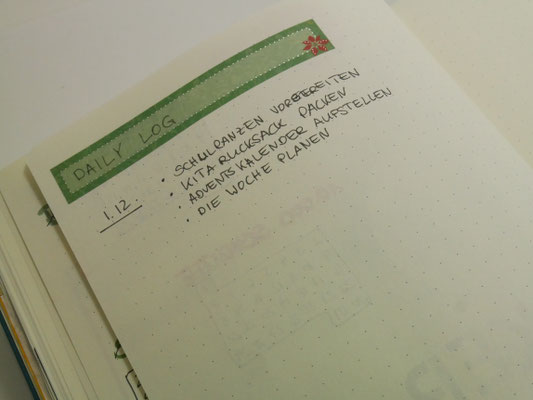 DAILY LOG
1.12.
• SCHULRANZEN VORBEREITEN
• KITA-RUCKSACK PACKEN
• ADVENTSKALENDER AUFSTELLEN
• DIE WOCHE PLANEN